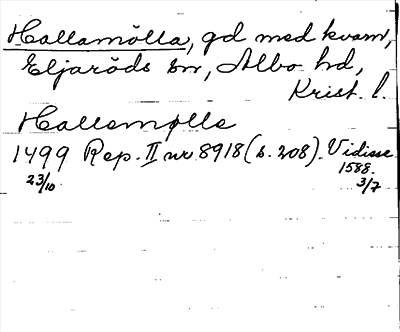 Hallamölla, gd med kvarn,
Eljaröds sn, Albo hd,
Krist. l.
Hallemølle
1499 Rep. II nr 8918 (s. 208). Vidisse
23/10 1588.
3/7